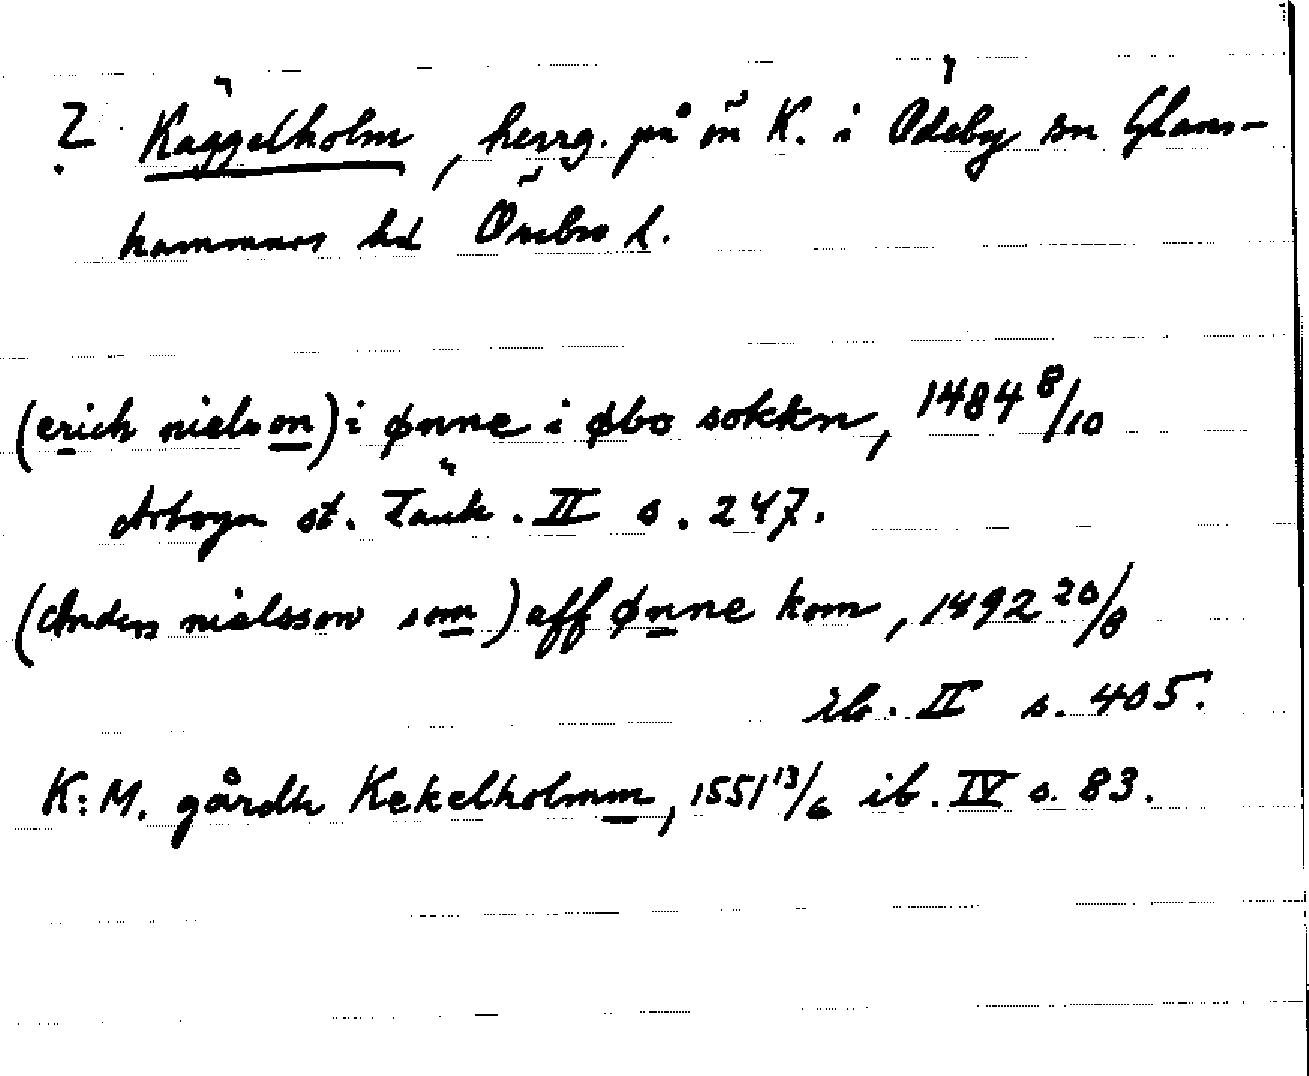 ? Käggelholm, herrg. på ön K. i Ödeby sn Glans-
hammars hd Örebro l.
(erich nielson) i ønne i øbo sokkn, 1484 8/10
Arboga st. Tänk. II s. 247.
(Anders nielsson som) aff ønne kom, 1492 20/8
ib. II s. 405.
K: M. gårdh Kekelholmm, 1551 13/6 ib. IV s. 83.